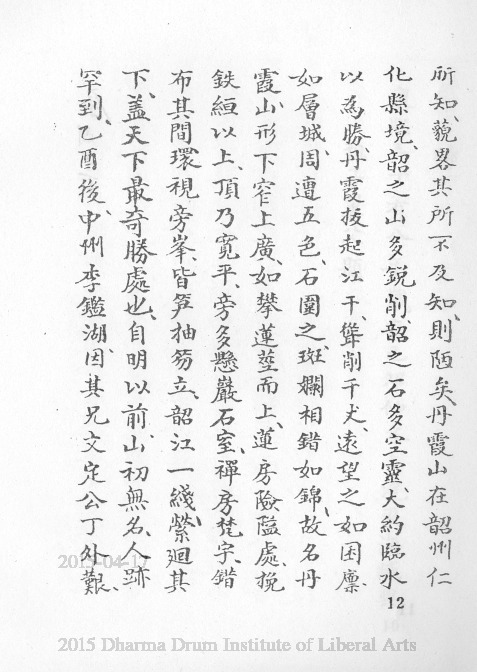 所知、藐畧其所不及知、則陋矣、丹霞山在韶州仁
化縣境、韶之山多銳削、韶之石多空靈、大約臨水
以為勝、丹霞拔起江干、聳削千丈、遠望之如囷廩、
如層城、周遭五色、石圍之、斑斕相錯如錦、故名丹
霞、山形下窄上廣、如攀蓮莖而上、蓮房險隘處、挽
鉄絙以上、頂乃寬平、旁多懸巖石室、禪房梵宇、錯
布其間、環視旁峯、皆笋抽笏立、韶江一綫、縈廻其
下、盖天下最奇勝處也、自明以前、山初無名、人跡
罕到、乙酉後、中州李鑑湖、因其兄文定公丁外艱、
12
2015-04-17
2015 Dharma Drum Institute of Liberal Arts